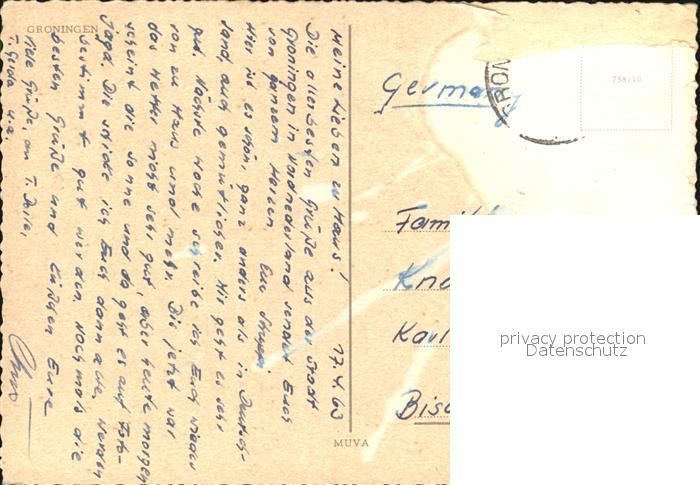 GRONINGEN
Meine Lieben zu Haus! 17.4.63
Die allerbesten Grüße aus der Stadt
Groningen in Nordnederland sendet Euch
von ganzem Herzen Eur
Hier ist es schön, ganz anders als in Deutsch-
land, auch gemütlicher. Mir geht es sehr
gut. Nächste Woche schreibe ich Euch wieder
von zu Haus und mehr. Bis jetzt war
das Wetter nicht sehr gut, aber heute morgen
scheint die Sonne und da geht es auf Foto-
jagd. Die schicke ich Euch dann alle, werden
bestimmt gut werden. Nochmals die
besten Grüße und Küßchen Eure
viele Grüße, an T.
T. Gerda u.a.
MUVA
Germany
758/10
Famil
Kno
Karl
Bisc
privacy protection
Datenschutz